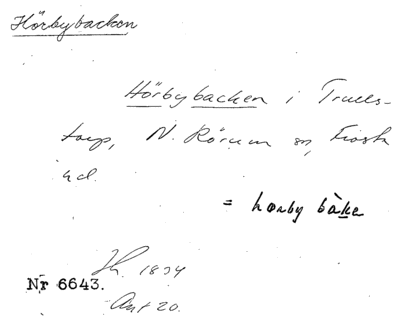 Hörbybacken
Hörbybacken i Truls-
torp, N. Rörum sn, Frosta
hd.
= hœrby bàkœ
Jh. 1834
Nr 6643.
Akt 20.